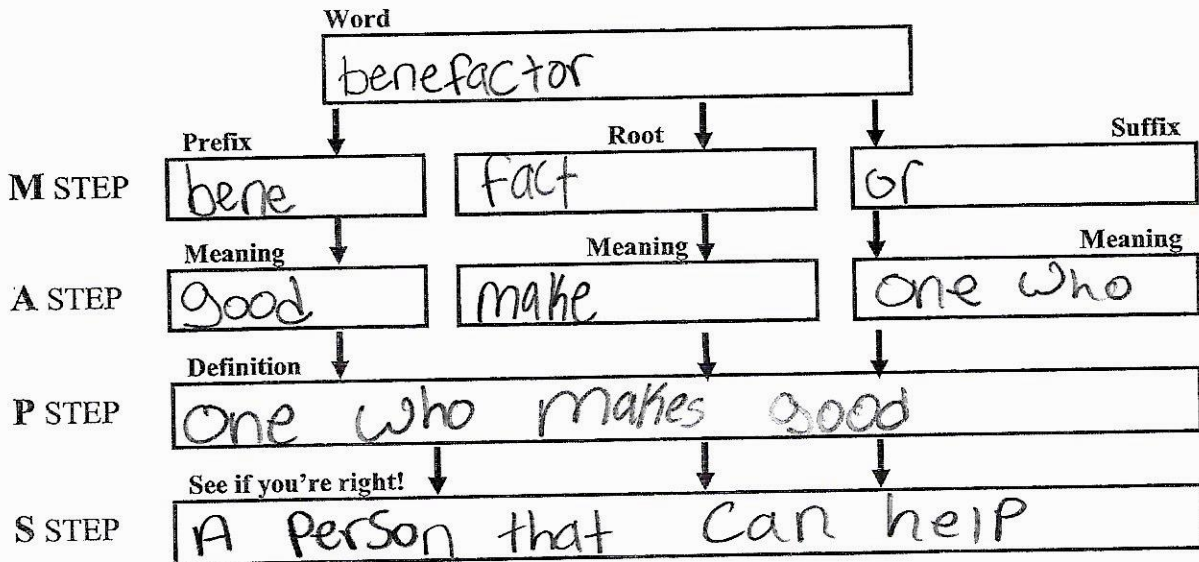 Word
benefactor
Prefix Root Suffix
M STEP bene fact or
Meaning Meaning Meaning
A STEP good make one who
Definition
P STEP one who makes good
See if you're right!
S STEP A Person that can help